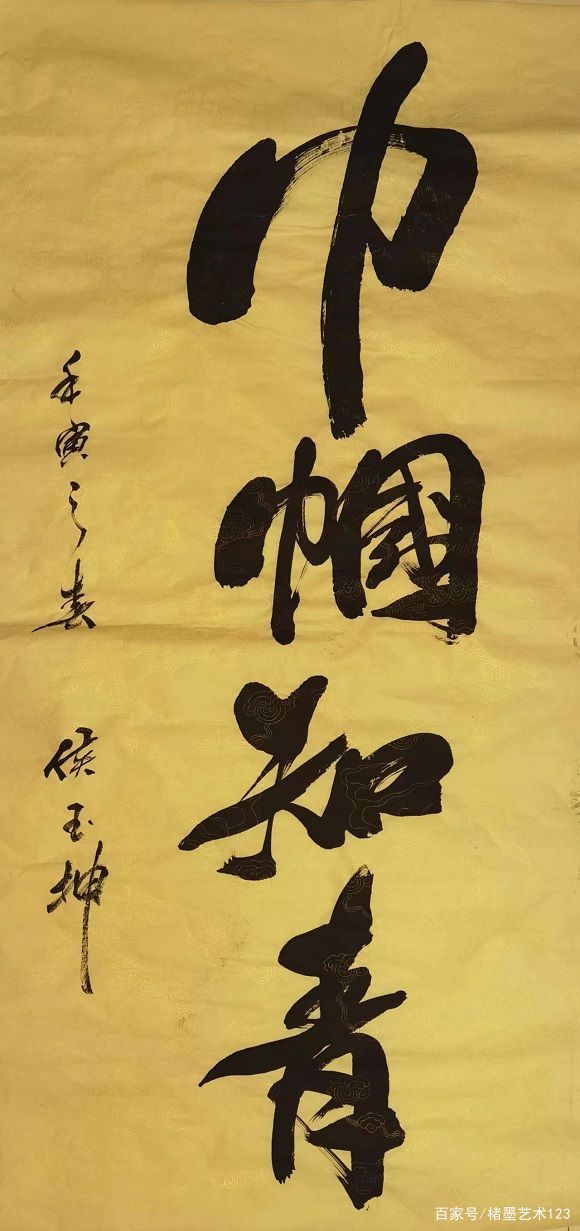 巾帼知青
壬寅之春
侯玉坤
百家号/楮墨艺术123